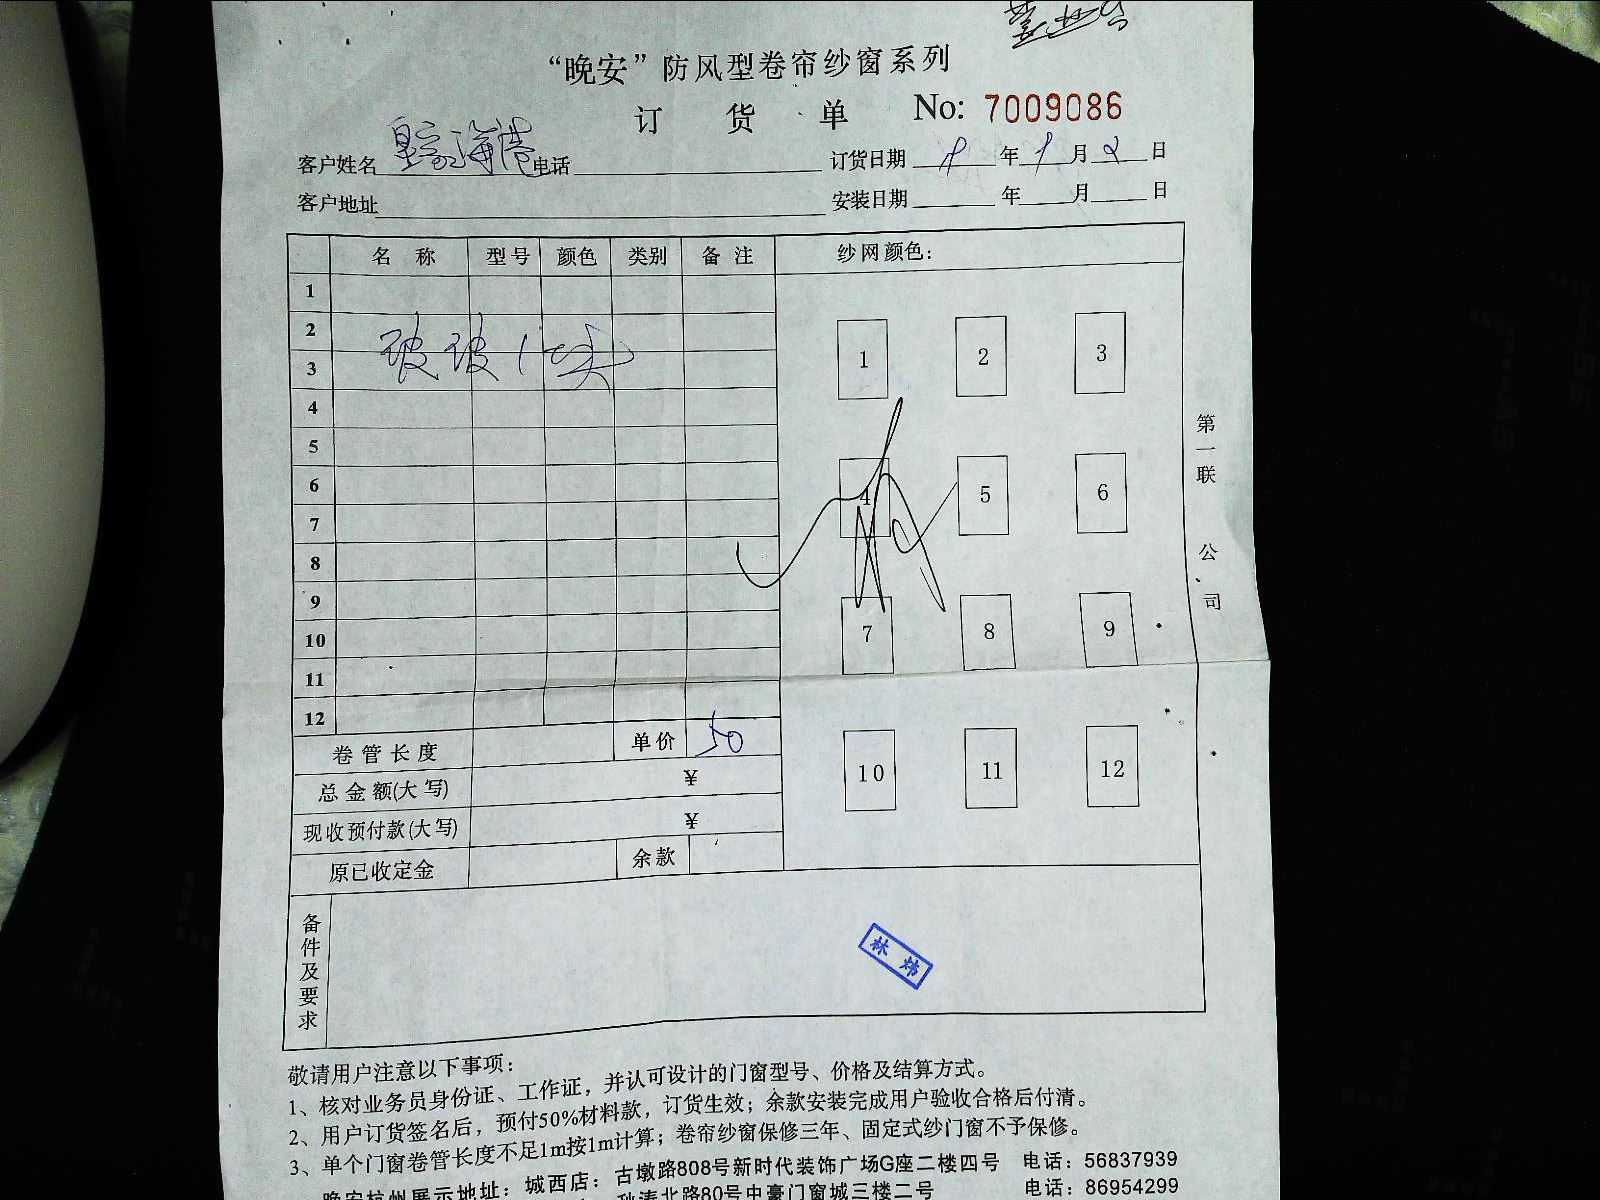 “晚安”防风型卷帘纱窗系列
订 货 单 No: 7009086
客户姓名 皇家海港 电话 订货日期 年 9 月 2 日
客户地址 安装日期 年 月 日
名 称 型号 颜色 类别 备 注 纱网颜色:
1
2
3
4
5
6
7
8
9
10
11
12
玻玻
1 2 3
4 5 6
7 8 9
10 11 12
第一联 公司
卷管长度 单价 50
总金额(大写) ¥
现收预付款(大写) ¥
原已收定金 余款
备件及要求
林炜
敬请用户注意以下事项:
1、核对业务员身份证、工作证，并认可设计的门窗型号、价格及结算方式。
2、用户订货签名后，预付50%材料款，订货生效；余款安装完成用户验收合格后付清。
3、单个门窗卷管长度不足1m按1m计算；卷帘纱窗保修三年、固定式纱门窗不予保修。
晚安杭州展示地址：城西店：古墩路808号新时代装饰广场G座二楼四号 电话：56837939
北路80号中豪门窗城三楼二号 电话：86954299